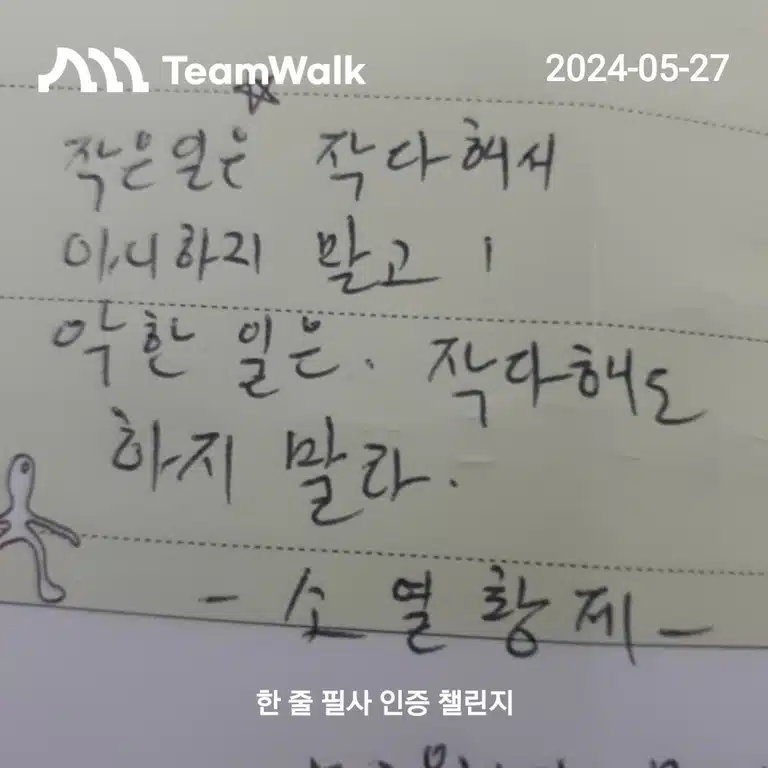 TeamWalk
2024-05-27
작은일은 작다해서
아니하지 말고
악한 일은. 작다해도
하지 말라.
- 소열황제 -
한 줄 필사 인증 챌린지